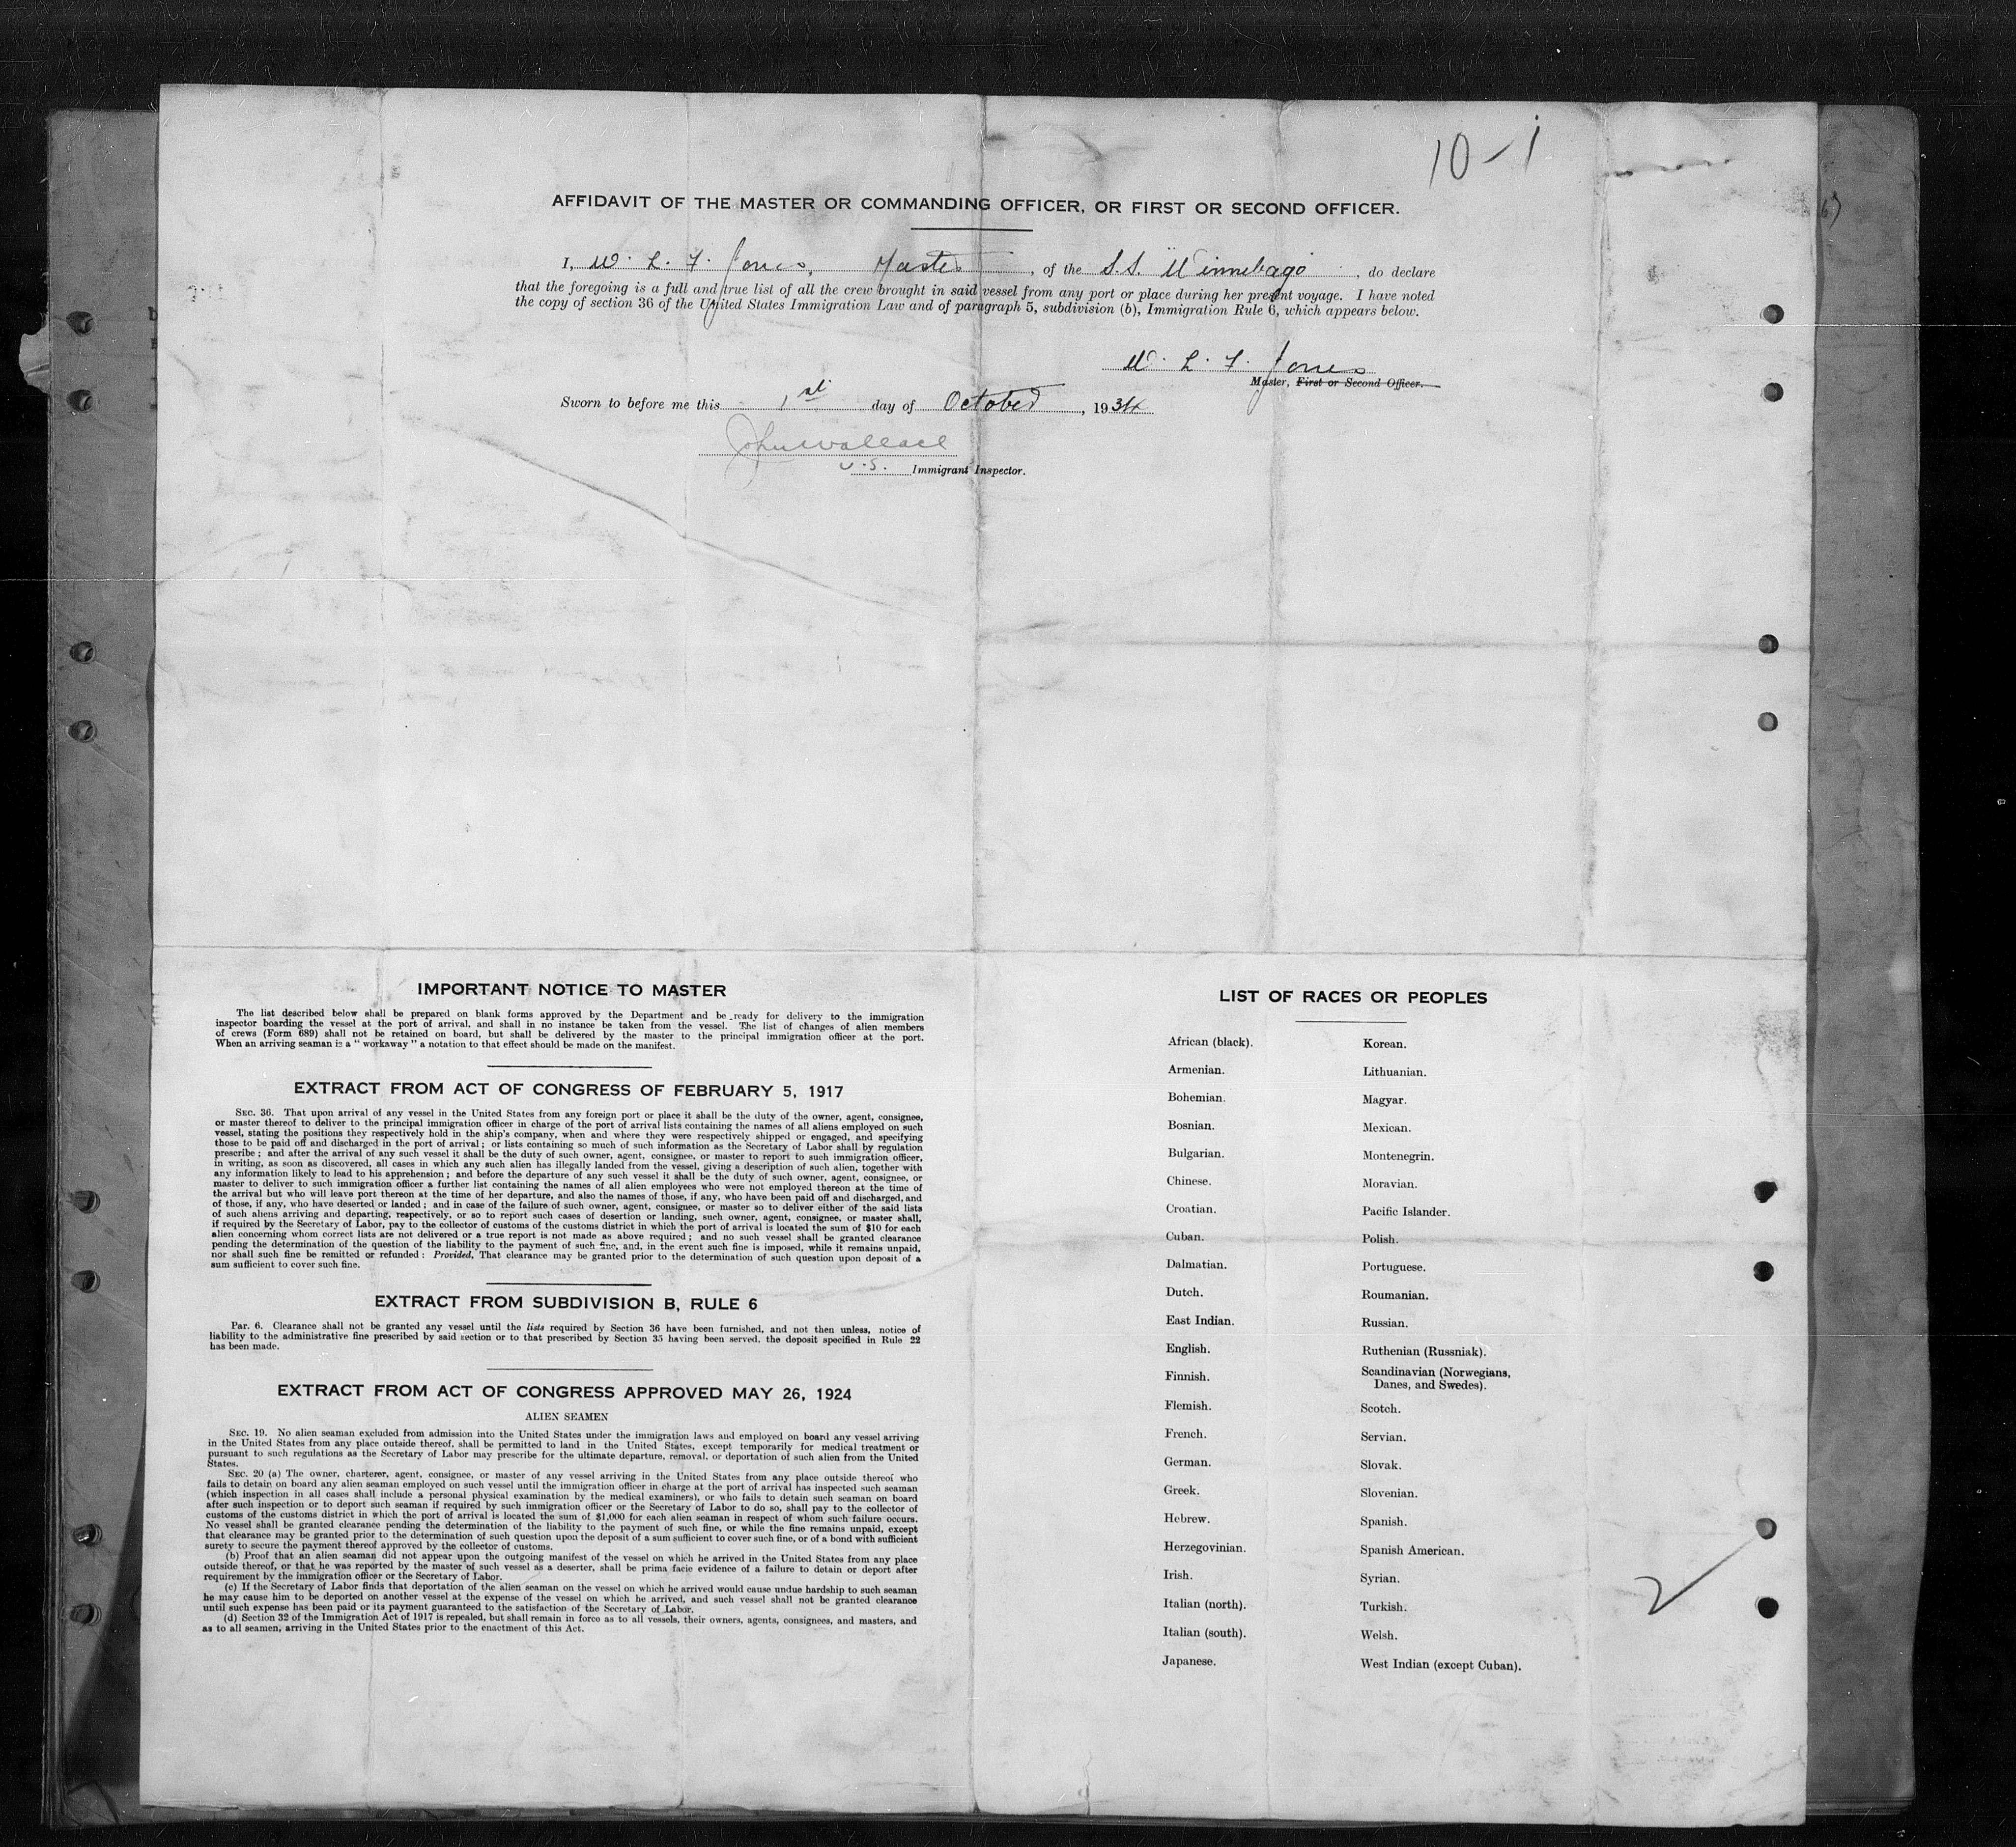 10-1
AFFIDAVIT OF THE MASTER OR COMMANDING OFFICER, OR FIRST OR SECOND OFFICER.
I, W. L. F. Jones, Master, of the S.S. Winnebago, do declare
that the foregoing is a full and true list of all the crew brought in said vessel from any port or place during her present voyage. I have noted
the copy of section 36 of the United States Immigration Law and of paragraph 5, subdivision (b), Immigration Rule 6, which appears below.
W. L. F. Jones
Master, First or Second Officer.
Sworn to before me this 1st day of October, 1934
John Wallace
U.S. Immigrant Inspector.
IMPORTANT NOTICE TO MASTER
The list described below shall be prepared on blank forms approved by the Department and be ready for delivery to the immigration
inspector boarding the vessel at the port of arrival, and shall in no instance be taken from the vessel. The list of changes of alien members
of crews (Form 689) shall not be retained on board, but shall be delivered by the master to the principal immigration officer at the port.
When an arriving seaman is a " workaway " a notation to that effect should be made on the manifest.
EXTRACT FROM ACT OF CONGRESS OF FEBRUARY 5, 1917
SEC. 36. That upon arrival of any vessel in the United States from any foreign port or place it shall be the duty of the owner, agent, consignee,
or master thereof to deliver to the principal immigration officer in charge of the port of arrival lists containing the names of all aliens employed on such
vessel, stating the positions they respectively hold in the ship's company, when and where they were respectively shipped or engaged, and specifying
those to be paid off and discharged in the port of arrival ; or lists containing so much of such information as the Secretary of Labor shall by regulation
prescribe ; and after the arrival of any such vessel it shall be the duty of such owner, agent, consignee, or master to report to such immigration officer,
in writing, as soon as discovered, all cases in which any such alien has illegally landed from the vessel, giving a description of such alien, together with
any information likely to lead to his apprehension ; and before the departure of any such vessel it shall be the duty of such owner, agent, consignee, or
master to deliver to such immigration officer a further list containing the names of all alien employees who were not employed thereon at the time of
the arrival but who will leave port thereon at the time of her departure, and also the names of those, if any, who have been paid off and discharged, and
of those, if any, who have deserted or landed ; and in case of the failure of such owner, agent, consignee, or master so to deliver either of the said lists
of such aliens arriving and departing, respectively, or so to report such cases of desertion or landing, such owner, agent, consignee, or master shall,
if required by the Secretary of Labor, pay to the collector of customs of the customs district in which the port of arrival is located the sum of $10 for each
alien concerning whom correct lists are not delivered or a true report is not made as above required ; and no such vessel shall be granted clearance
pending the determination of the question of the liability to the payment of such fine, and, in the event such fine is imposed, while it remains unpaid,
nor shall such fine be remitted or refunded : Provided, That clearance may be granted prior to the determination of such question upon deposit of a
sum sufficient to cover such fine.
EXTRACT FROM SUBDIVISION B, RULE 6
Par. 6. Clearance shall not be granted any vessel until the lists required by Section 36 have been furnished, and not then unless, notice of
liability to the administrative fine prescribed by said section or to that prescribed by Section 35 having been served, the deposit specified in Rule 22
has been made.
EXTRACT FROM ACT OF CONGRESS APPROVED MAY 26, 1924
ALIEN SEAMEN
SEC. 19. No alien seaman excluded from admission into the United States under the immigration laws and employed on board any vessel arriving
in the United States from any place outside thereof, shall be permitted to land in the United States, except temporarily for medical treatment or
pursuant to such regulations as the Secretary of Labor may prescribe for the ultimate departure, removal, or deportation of such alien from the United
States.
SEC. 20 (a) The owner, charterer, agent, consignee, or master of any vessel arriving in the United States from any place outside thereof who
fails to detain on board any alien seaman employed on such vessel until the immigration officer in charge at the port of arrival has inspected such seaman
(which inspection in all cases shall include a personal physical examination by the medical examiners), or who fails to detain such seaman on board
after such inspection or to deport such seaman if required by such immigration officer or the Secretary of Labor to do so, shall pay to the collector of
customs of the customs district in which the port of arrival is located the sum of $1,000 for each alien seaman in respect of whom such failure occurs.
No vessel shall be granted clearance pending the determination of the liability to the payment of such fine, or while the fine remains unpaid, except
that clearance may be granted prior to the determination of such question upon the deposit of a sum sufficient to cover such fine, or of a bond with sufficient
surety to secure the payment thereof approved by the collector of customs.
(b) Proof that an alien seaman did not appear upon the outgoing manifest of the vessel on which he arrived in the United States from any place
outside thereof, or that he was reported by the master of such vessel as a deserter, shall be prima facie evidence of a failure to detain or deport after
requirement by the immigration officer or the Secretary of Labor.
(c) If the Secretary of Labor finds that deportation of the alien seaman on the vessel on which he arrived would cause undue hardship to such seaman
he may cause him to be deported on another vessel at the expense of the vessel on which he arrived, and such vessel shall not be granted clearance
until such expense has been paid or its payment guaranteed to the satisfaction of the Secretary of Labor.
(d) Section 32 of the Immigration Act of 1917 is repealed, but shall remain in force as to all vessels, their owners, agents, consignees, and masters, and
as to all seamen, arriving in the United States prior to the enactment of this Act.
LIST OF RACES OR PEOPLES
African (black).
Armenian.
Bohemian.
Bosnian.
Bulgarian.
Chinese.
Croatian.
Cuban.
Dalmatian.
Dutch.
East Indian.
English.
Finnish.
Flemish.
French.
German.
Greek.
Hebrew.
Herzegovinian.
Irish.
Italian (north).
Italian (south).
Japanese.
Korean.
Lithuanian.
Magyar.
Mexican.
Montenegrin.
Moravian.
Pacific Islander.
Polish.
Portuguese.
Roumanian.
Russian.
Ruthenian (Russniak).
Scandinavian (Norwegians,
Danes, and Swedes).
Scotch.
Servian.
Slovak.
Slovenian.
Spanish.
Spanish American.
Syrian.
Turkish.
Welsh.
West Indian (except Cuban).